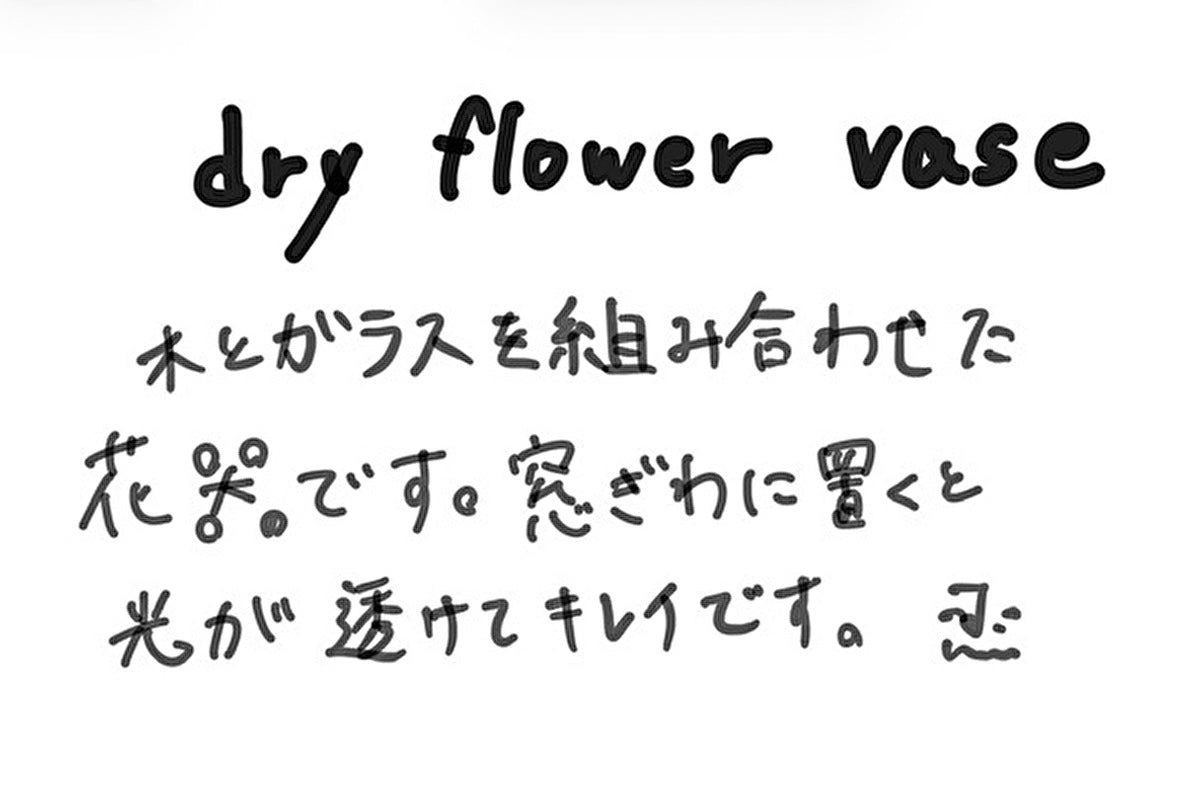 dry flower vase
木とガラスを組み合わせた
花器です。窓ぎわに置くと
光が透けてキレイです。